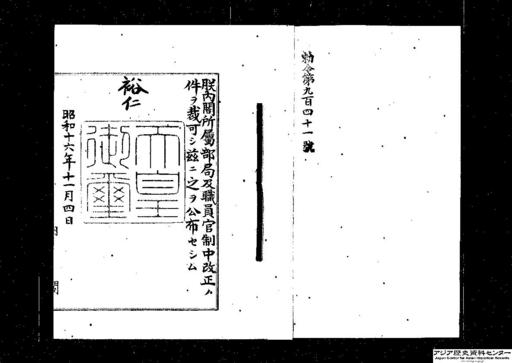 勅令第九百四十一號
朕内閣所屬部局及職員官制中改正ノ
件ヲ裁可シ茲ニ之ヲ公布セシム
裕仁
天皇
御璽
昭和十六年十一月四日
アジア歴史資料センター
Japan Center for Asian Historical Records